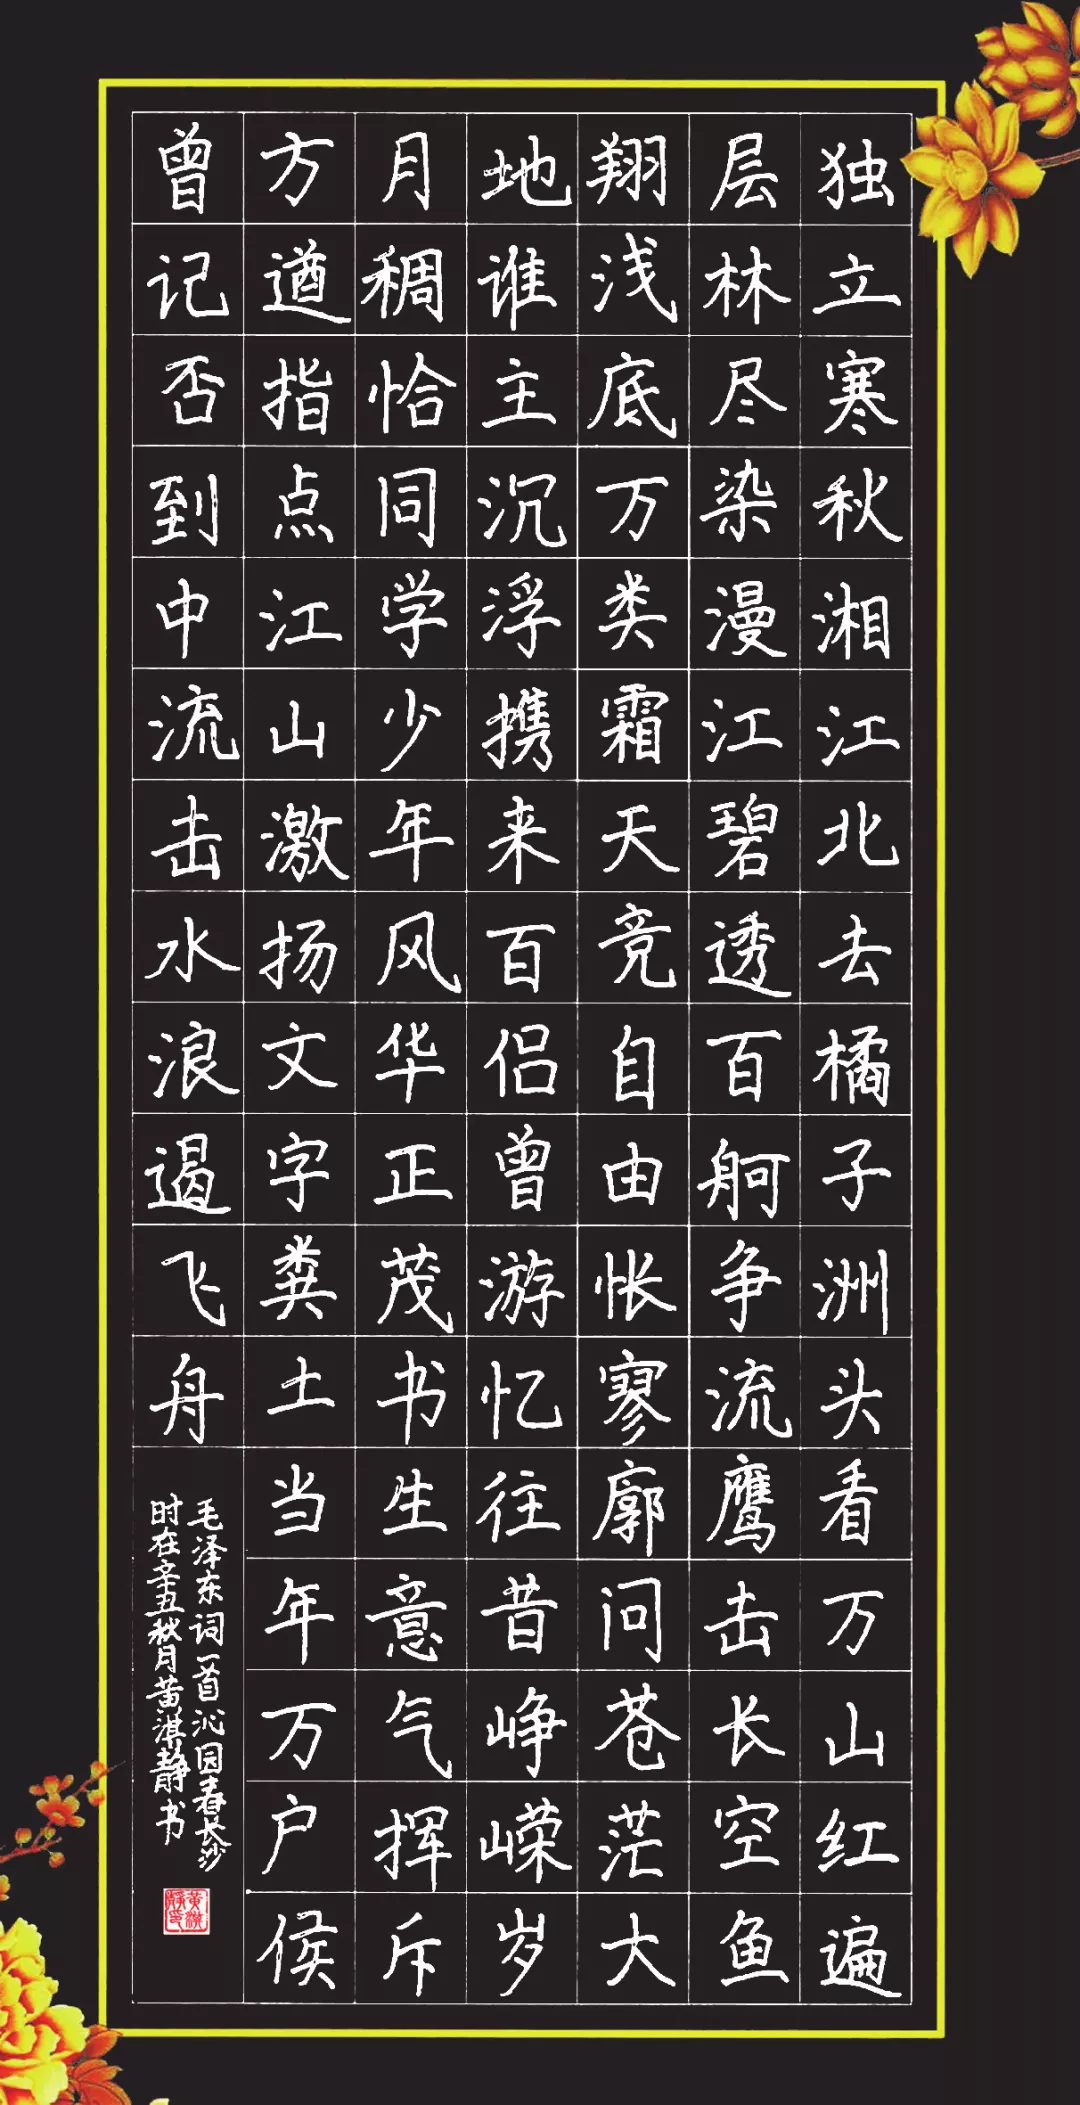 独立寒秋湘江北去橘子洲头看万山红遍
层林尽染漫江碧透百舸争流鹰击长空鱼
翔浅底万类霜天竞自由怅寥廓问苍茫大
地谁主沉浮携来百侣曾游忆往昔峥嵘岁
月稠恰同学少年风华正茂书生意气挥斥
方遒指点江山激扬文字粪土当年万户侯
曾记否到中流击水浪遏飞舟
毛泽东词一首沁园春长沙
时在辛丑秋月黄淇静书
黄淇静印